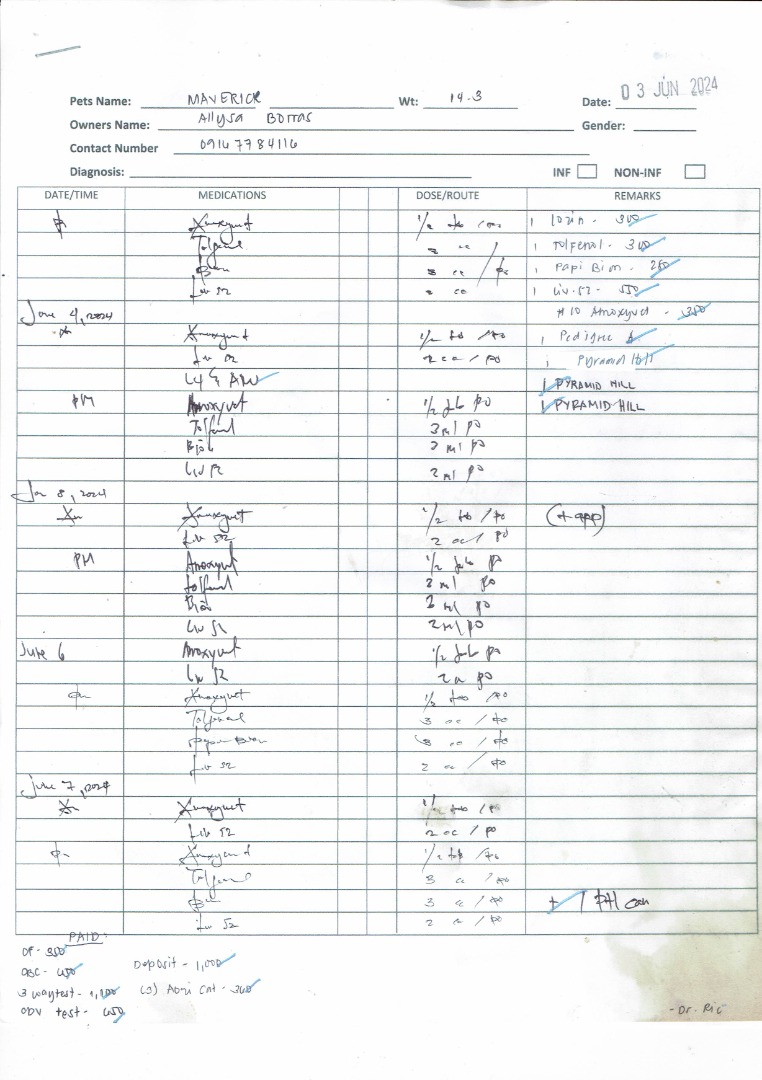 Pets Name: MAVERICK Wt: 14.3 Date: 03 JUN 2024
Owners Name: Allysa Borras Gender:
Contact Number 09167784116
Diagnosis: INF NON-INF
DATE/TIME MEDICATIONS DOSE/ROUTE REMARKS
Amoxyvet 1/2 tab 1 - 300
Tolfenal cc 1 Tolfenal - 300
cc / po 1 Papi Bion - 250
Liv 52 cc 1 Liv.52 - 550
June 4, 2024 #10 Amoxyvet - 350
Amoxyvet 1/2 tab / po 1 Pedigree
Liv 52 2 cc / po 1 Pyramid Hill
1 PYRAMID HILL
PM Amoxyvet 1/2 tab po 1 PYRAMID HILL
Tolfenal 3 ml po
3 ml po
Liv 52 2 ml po
8, 2024
Amoxyvet 1/2 tab / po (+ app)
Liv 52 2 cc / po
PM Amoxyvet 1/2 tab po
Tolfenal 3 ml po
3 ml po
Liv 52 2 ml po
June 6 Amoxyvet 1/2 tab po
Liv 52 2 cc po
Amoxyvet 1/2 tab / po
Tolfenal 3 cc / po
3 cc / po
Liv 52 2 cc / po
June 7, 2024
Amoxyvet 1/2 tab / po
Liv 52 2 cc / po
Amoxyvet 1/2 tab / po
Tolfenal 3 cc / po
3 cc / po 1 PH can
Liv 52 2 cc / po
PAID:
DF - 350
CBC - 450 Deposit - 1,000
3 way test - 1,100 (3) Aozi Cat - 360
CDV test - 650 - Dr. Ric